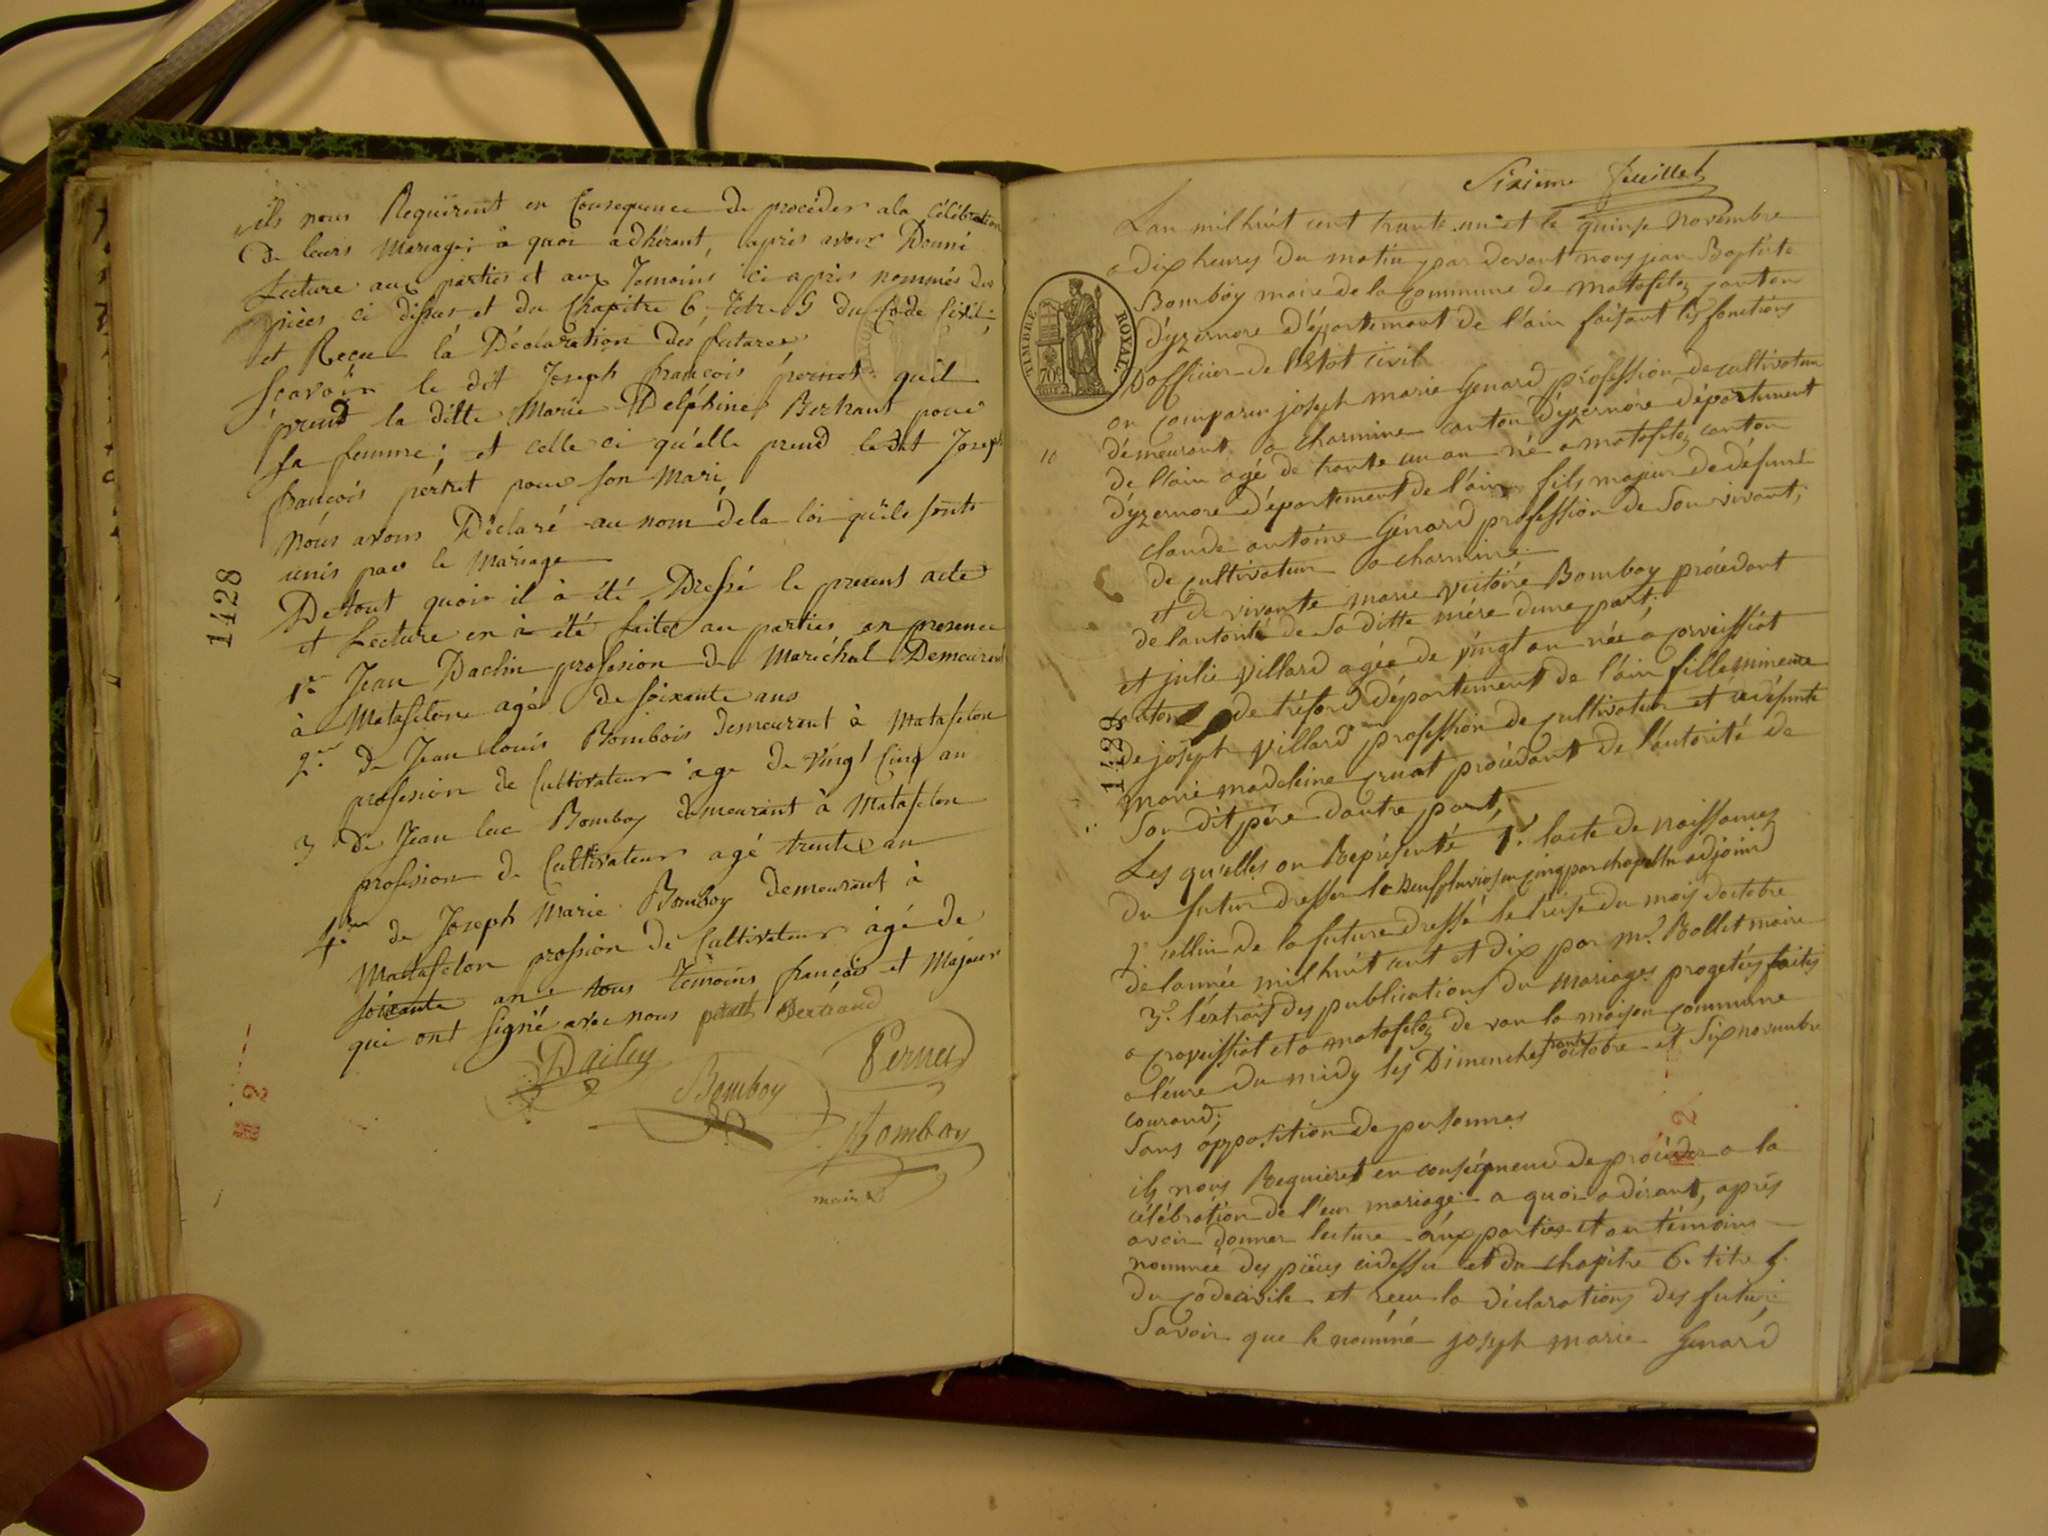 ils nous Requirent en Consequence de procéder a la célébration
De leurs Mariage; à quoi adhérant, après avoir Donné
Lecture aux parties et aux Temoins ci après nommés des
pièces ci dessus et du Chapitre 6 titre 5 du Code Civil:
et Reçu la Déclaration des futures
Scavoir le dit Joseph françois pernet quil
prend la ditte Marie Delphine Bertrant pour
sa femme; et celle ci qu'elle prend le dit Joseph
françois pernet pour son Mari
Nous avons Déclaré au nom de la loi qu'ils sonts
unis par le Mariage
De tout quoi il à été Dressé le present acte
et Lecture en à été faite au parties en presence
1428
1er Jean Daclin profession de Maréchal Demeurent
à Matafelon agé de soixante ans
2er de Jean Louis Bombois demeurant à Matafelon
profession de Cultivateur age de Vingt Cinq an
3 de Jean luc Bomboy demeurant à Matafelon
profession de Cultivateur agé trente an
4er de Joseph Marie Bomboy demeurant à
Matafelon profession de Cultivateur agé de
soixante an tous Temoins français et Majeur
qui ont signé avec nous pernet Bertrand
Pernet
Bomboy
Bomboy
maire
Sixieme feuillet
Lan mil huit cent trante un et le quinse novembre
a dix heures du matin par devant nous jean Baptiste
Bomboy maire de la Commune de matafeloz canton
d'yzernore département de l'ain faisant les fonctions
D'officier de l'Etat civil
TIMBRE ROYAL
on comparu joseph marie Genard profession de cultivateur
démeurant a charmine canton d'yzernore département
10
de l'ain agé de trante un an né a matafeloz canton
d'yzernore département de l'ain fils majeur de défunt
claude antoine Genard profession de Son vivant,
de cultivateur a charmine
et de vivante marie victoire Bomboy procédant
de l'autorité de Sa ditte mére dune part;
et julie villard agée de vingt an née a corveissiat
canton de tréford département de l'ain fille mineure
de joseph villard profession de cultivateur et de défunte
1429
marie madeleine cruat procédant de l'autorité de
Son dit pére dautre part,
Les qu'elles on Représenté 1.° lacte de naissances
du futur dresser le neuf pluviose an cinq par chapelle adjoint
2° cellui de la future dressé le treise du mois doctobre
de lannée mil huit cent et dix par mr Bollet maire
3.° l'extrait des publications du mariages progetés faites
a corveissiat et a matafeloz de van la maison commune
a l'eure du midy les Dimenches trante octobre et Six novembre
courand;
Sans opposition de personnes
ils nous Requieret en conséqueuse de procéder a la
célébration de l'eur mariage a quoi adérant, aprés
avoir donner lecture aux parties et au témoins
nommée des piéces cidessu et du chapitre 6. titre 5.
du code civile et receu la déclarations des futur
Savoir que le nommé joseph marie Genard